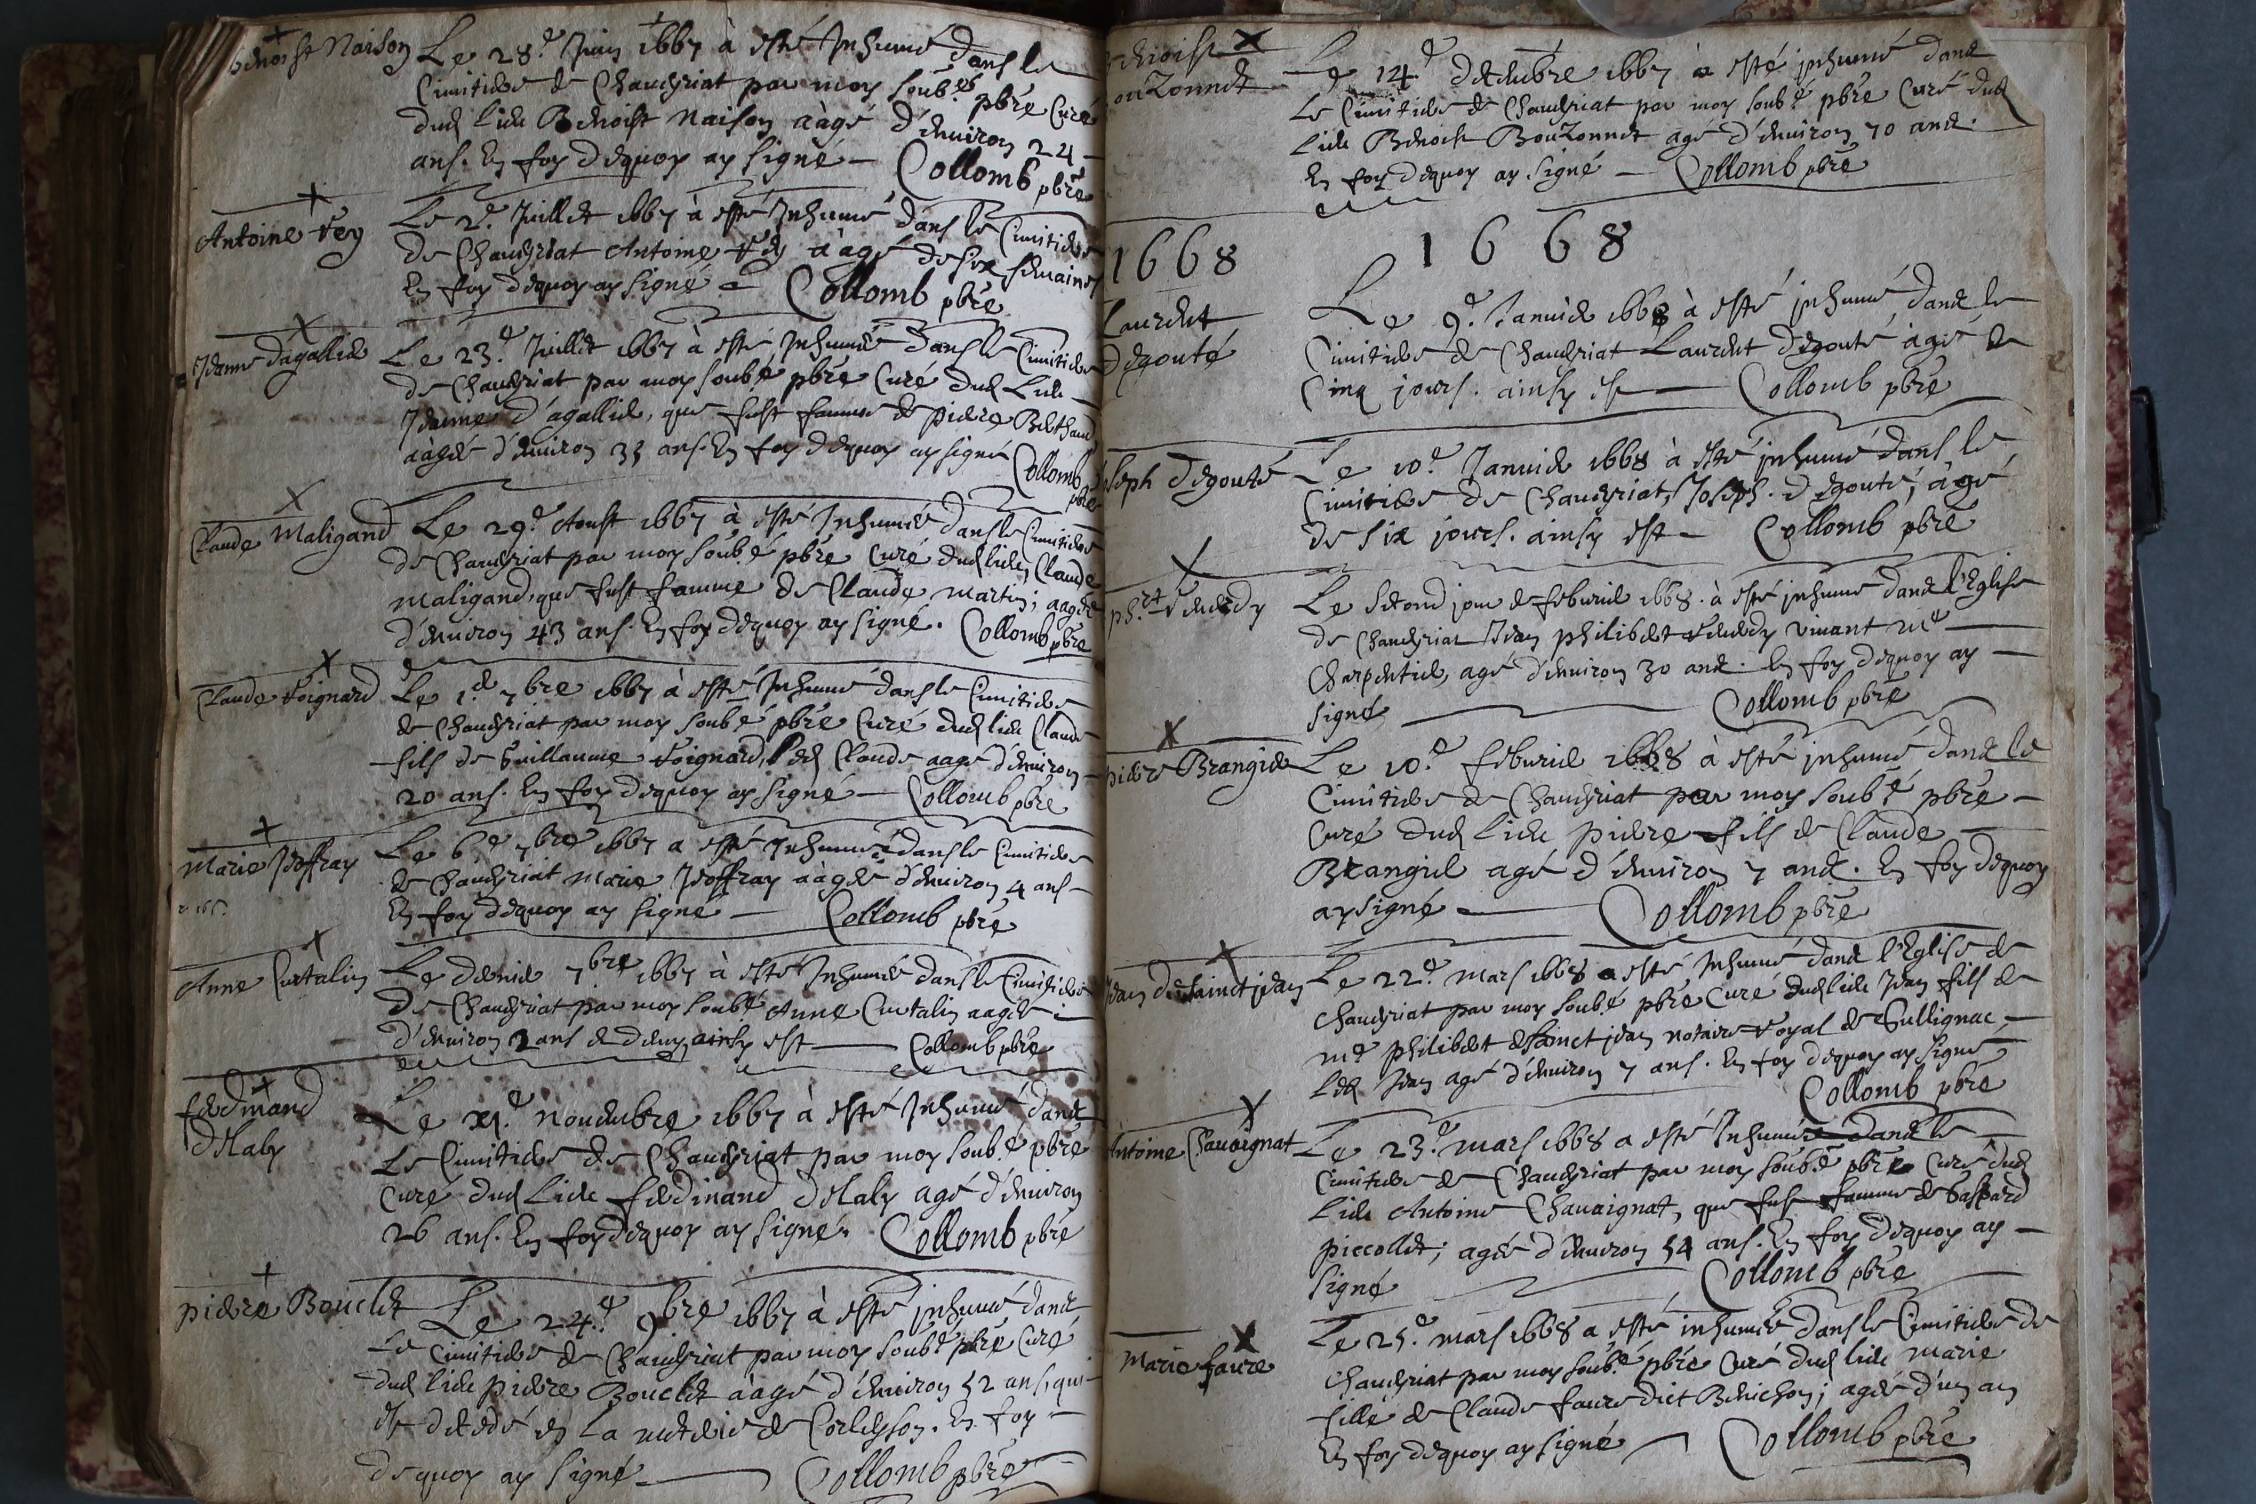 Benoist Naison
Le 28.e Juin 1667 à esté Inhumé dans le
Cimitiere de Chaveyriat par moy soub.é pbre Curé
dud lieu Benoist Naison aagé d'environ 24
ans. En foy dequoy ay signé — Collomb pbre
Antoine Vey
Le 2.e Juillet 1667 à esté Inhumé dans le Cimitiere
de Chaveyriat Antoine Vey aagé de six semaines
En foy dequoy ay signé — Collomb pbre
Jeanne d'agallier
Le 23.e Juillet 1667 à esté Inhumée dans le Cimitiere
de Chaveyriat par moy soub.é pbre Curé dud Lieu
Jeanne d'agallier, que fust famme de pierre Berthaud
aagée d'environ 35 ans. En foy dequoy ay signé
Collomb pbre
Claude Maligand
Le 29.e Aoust 1667 à esté Inhumée dans le Cimitiere
de Chaveyriat par moy soub.é pbre Curé dud lieu, Claude
Maligand, que fust famme de Claude Martin; aagée
d'environ 43 ans. En foy dequoy ay signé. Collomb pbre
Claude Voignard
Le 1.er 7bre 1667 à esté Inhumé dans le Cimitiere
de Chaveyriat par moy soub.é pbre Curé dud lieu Claude
fils de Guillaume Voignard, led Claude aagé d'environ
20 ans. En foy dequoy ay signé — Collomb pbre
Marie Jeoffray
Le 6e 7bre 1667 a esté Inhumée dans le Cimitiere
de Chaveyriat Marie Jeoffray aagée d'environ 4 ans
En foy dequoy ay signé — Collomb pbre
Anne Curtalin
Le dernier 7bre 1667 à esté Inhumée dans le Cimitiere
de Chaveyriat par moy soub.é Anne Curtalin aagée
d'environ 2 ans et demy, ainsy est — Collomb pbre
ferdinand
delaby
Le XI.e Novembre 1667 à esté Inhumé dans
Le Cimitiere de Chaveyriat par moy soub.é pbre
Curé dud Lieu ferdinand delaby agé d'environ
26 ans. En foy dequoy ay signé. Collomb pbre
pierre Bouclet
Le 24.e 9bre 1667 à esté inhumé dans
Le Cimitiere de Chaveyriat par moy soub.é pbre Curé
dud lieu pierre Bouclet aagé d'environ 52 ans, qui
est decedé en La meterie de Corlesson. En foy
dequoy ay signé — Collomb pbre
Benoist
Bouzonnet
Le 14.e Decembre 1667 a esté inhumé dans
Le Cimitiere de Chaveyriat par moy soub.é pbre Curé dud
Lieu Benoist Bouzonnet agé d'environ 70 ans.
En foy dequoy ay signé — Collomb pbre
1668
1668
Laurent
Degouté
Le 9.e Janvier 1668 à esté inhumé, dans le
Cimitiere de Chaveyriat Laurent Degouté agé de
Cinq jours. ainsy est — Collomb pbre
Joseph Degouté
Le 10.e Janvier 1668 à esté inhumé dans le
Cimitiere de Chaveyriat, Joseph. Degouté, agé
de six jours. ainsy est — Collomb pbre
ph.rt Venerdy
Le Second jour de febvrier 1668. à esté inhumé dans l'Eglise
de Chaveyriat Jean philibert Venerdy vivant me
Charpentier, agé d'environ 30 ans. En foy dequoy ay
signé — Collomb pbre
pierre Brangier
Le 10.e febvrier 1668 à esté inhumé dans le
Cimitiere de Chaveyriat par moy soub.é pbre
Curé dud Lieu pierre fils de Claude
Brangier agé d'environ 7 ans. En foy dequoy
ay signé — Collomb pbre
Jean de sainct jean
Le 22.e Mars 1668 a esté Inhumé dans l'Eglise de
Chaveyriat par moy soub.é pbre Curé dud lieu Jean fils de
me philibert de sainct jean notaire Royal de Sullignac,
Led Jean agé d'environ 7 ans. En foy dequoy ay signé
Collomb pbre
Antoine Chavaignat
Le 23.e mars 1668 a esté Inhumée dans le
Cimitiere de Chaveyriat par moy soub.é pbre Curé dud
Lieu Antoine Chavaignat, que fust famme de Gaspard
piccollet; agée d'environ 54 ans. En foy dequoy ay
signé — Collomb pbre
Marie faure
Le 25.e mars 1668 a esté inhumée dans le Cimitiere de
Chaveyriat par moy soub.é pbre Curé dud lieu Marie
fille de Claude faure dict Benichon; agée d'un an
En foy dequoy ay signé — Collomb pbre